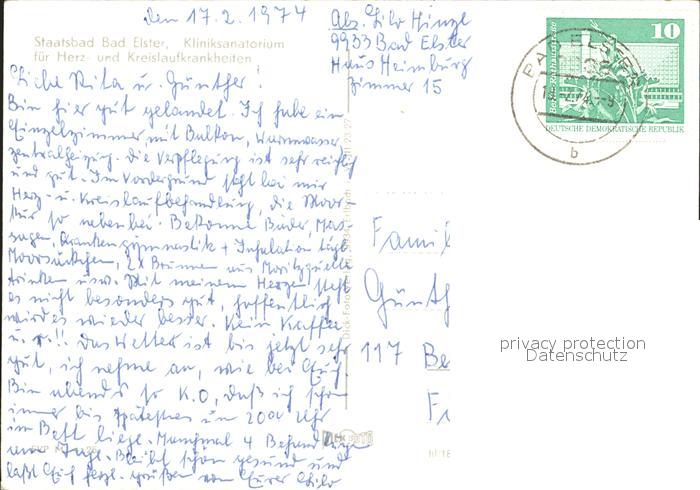 den 17.2.1974
Abs. Lilo Hinzl
9933 Bad Elster
Haus Heimburg
Zimmer 15
Staatsbad Bad Elster, Kliniksanatorium
für Herz- und Kreislaufkrankheiten
Liebe Rita u. Günther!
Bin hier gut gelandet. Ich habe ein
Einzelzimmer mit Balkon, Warmwasser
zentralheizung. Die Verpflegung ist sehr reichlich
und gut. Im Vordergrund steht bei mir
Herz- u. Kreislaufbehandlung, die Moor-
kur so nebenbei. Bekomme Bäder, Mas-
sagen, Krankengymnastik + Inhalation tägl.
Moorsäckchen, 2x Brunnen aus Moritzquelle
trinken usw. Mit meinem Herzen steht
es nicht besonders gut, hoffentlich
wird es wieder besser. Kein Kaffee
u. !! Das Wetter ist bis jetzt sehr
gut, ich nehme an, wie bei Euch
Bin abends so K.O, daß ich schon
immer bis spätestens um 20 00 Uhr
im Bett liege. Manchmal 4 Behandlungen
am Tage. Bleibt schön gesund und
laßt Euch herzl. grüßen von Eurer Lilo
10
DEUTSCHE DEMOKRATISCHE REPUBLIK
BAD ELSTER
b
Famil
Günth
117 Be
Fr
privacy protection
Datenschutz